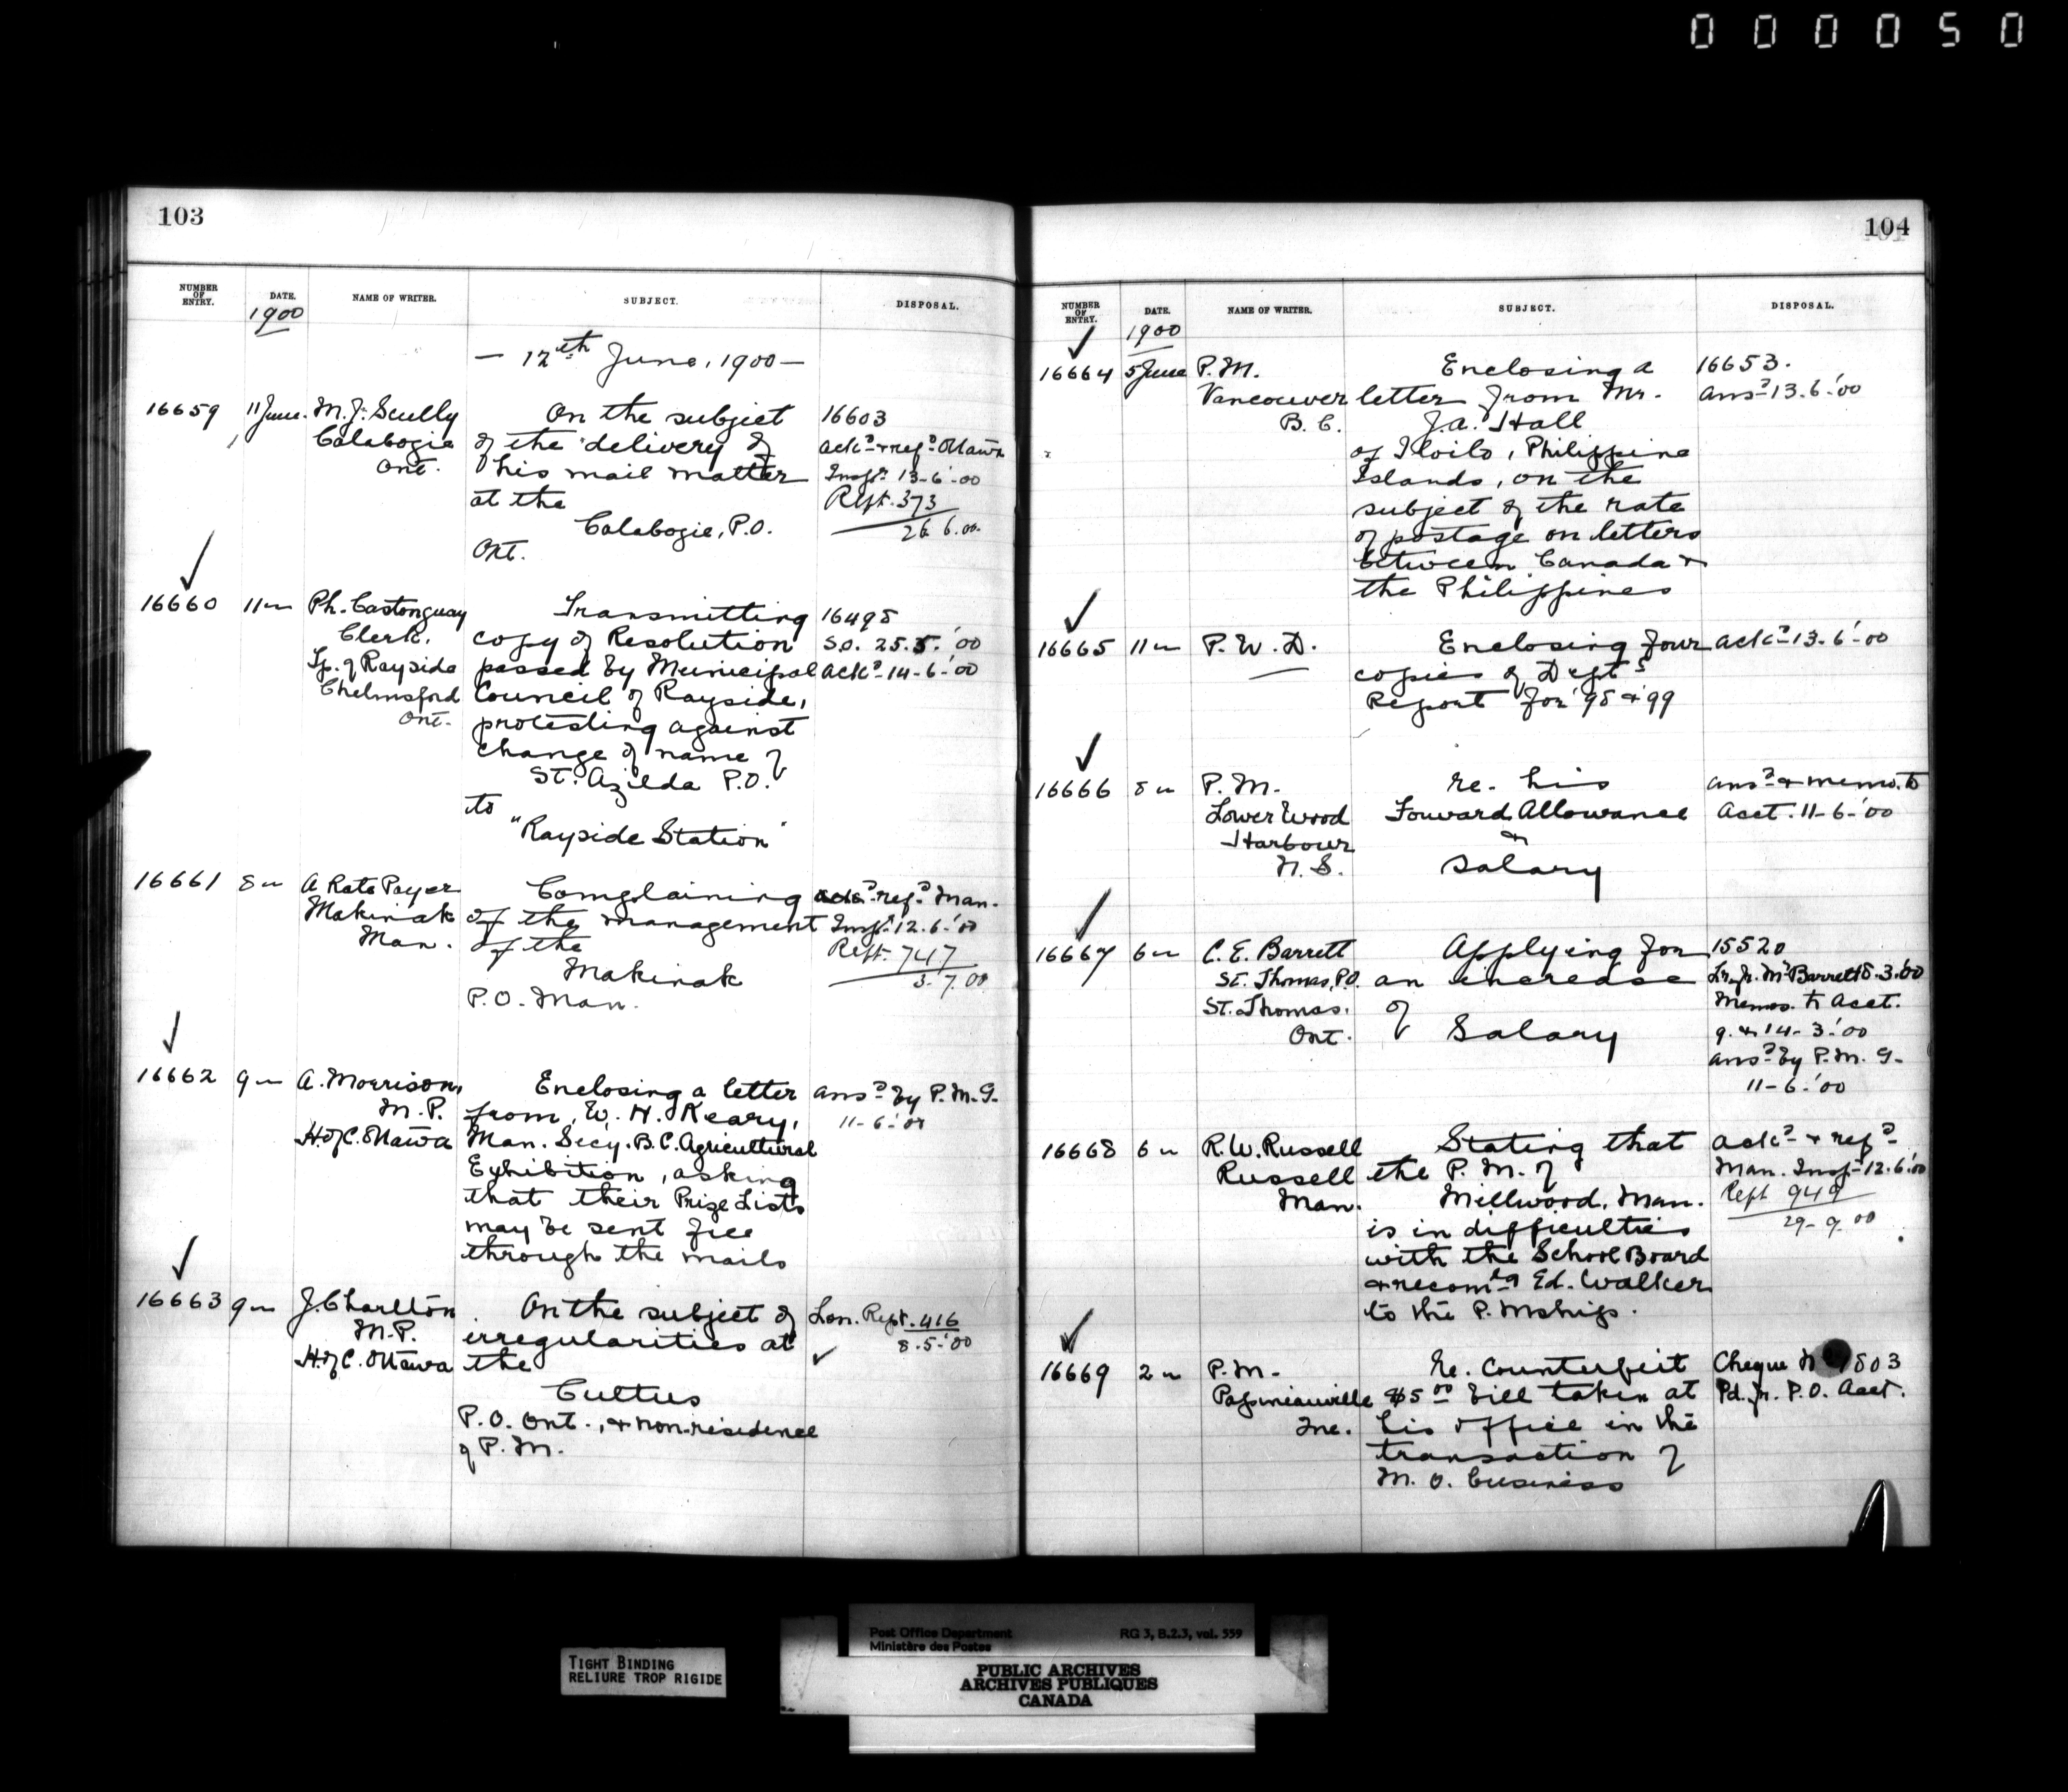 000050
103
NUMBER OF ENTRY. DATE. NAME OF WRITER. SUBJECT. DISPOSAL.
1900
— 12th June, 1900 —
16659 11 June. M. J. Scully On the subject 16603
Calabogie of the delivery of ackd & refd Ottawa
Ont. his mail matter Inspr 13-6-'00
at the Rept. 373
Calabogie, P.O. 26.6.00.
Ont.
16660 11 " Ph. Castonguay Transmitting 16498
Clerk, copy of Resolution S.O. 25.5.'00
Tp. of Rayside passed by Municipal ackd 14-6-'00
Chelmsford Council of Rayside,
Ont. protesting against
change of name of
St. Azilda P.O.
to
"Rayside Station"
16661 8 " A Rate Payer Complaining refd Man.
Makinak of the management Inspr 12.6.'00
Man. of the Rept. 747
Makinak 3.7.00
P.O. Man.
16662 9 " A. Morrison, Enclosing a letter ansd by P.M.G.
M.P. from W. H. Keary, 11-6-'00
H. of C. Ottawa Man. Secy. B.C. Agricultural
Exhibition, asking
that their Prize Lists
may be sent free
through the mails
16663 9 " J. Charlton On the subject of Lon. Rept. 416
M.P. irregularities at 8.5.'00
H. of C. Ottawa the
Cultus
P.O. Ont., & non-residence
of P.M.
104
NUMBER OF ENTRY. DATE. NAME OF WRITER. SUBJECT. DISPOSAL.
1900
16664 5 June P.M. Enclosing a 16653.
Vancouver letter from Mr. ansd 13.6.'00
B.C. J.A. Hall
of Iloilo, Philippine
Islands, on the
subject of the rate
of postage on letters
between Canada &
the Philippines
16665 11 " P.W.D. Enclosing four ackd 13.6.'00
copies of Dept's
Report for '98 & '99
16666 8 " P.M. re. his ansd & memo. to
Lower Wood Forward Allowance Acct. 11-6-'00
Harbour &
N.S. Salary
16667 6 " C.E. Barrett Applying for 15520
St. Thomas, P.O. an increase Lr. fr. Mr Barrett 8.3.'00
St. Thomas. of Memos. to Acct.
Ont. Salary 9. & 14-3-'00
ansd by P.M.G.
11-6-'00
16668 6 " R.W. Russell Stating that ackd & refd
Russell the P.M. of Man. Inspr 12.6.'00
Man. Millwood, Man. Rept 949
is in difficulties 29-9.00
with the School Board
& recomdg Ed. Walker
to the P. Mship.
16669 2 " P.M. re. Counterfeit Cheque 1803
Papineauville $5 00 bill taken at Pd. fr. P.O. Acct.
Que. his office in the
transaction of
M.O. business
Post Office Department RG 3, B.2.3, vol. 559
Ministère des Postes
TIGHT BINDING
RELIURE TROP RIGIDE
PUBLIC ARCHIVES
ARCHIVES PUBLIQUES
CANADA